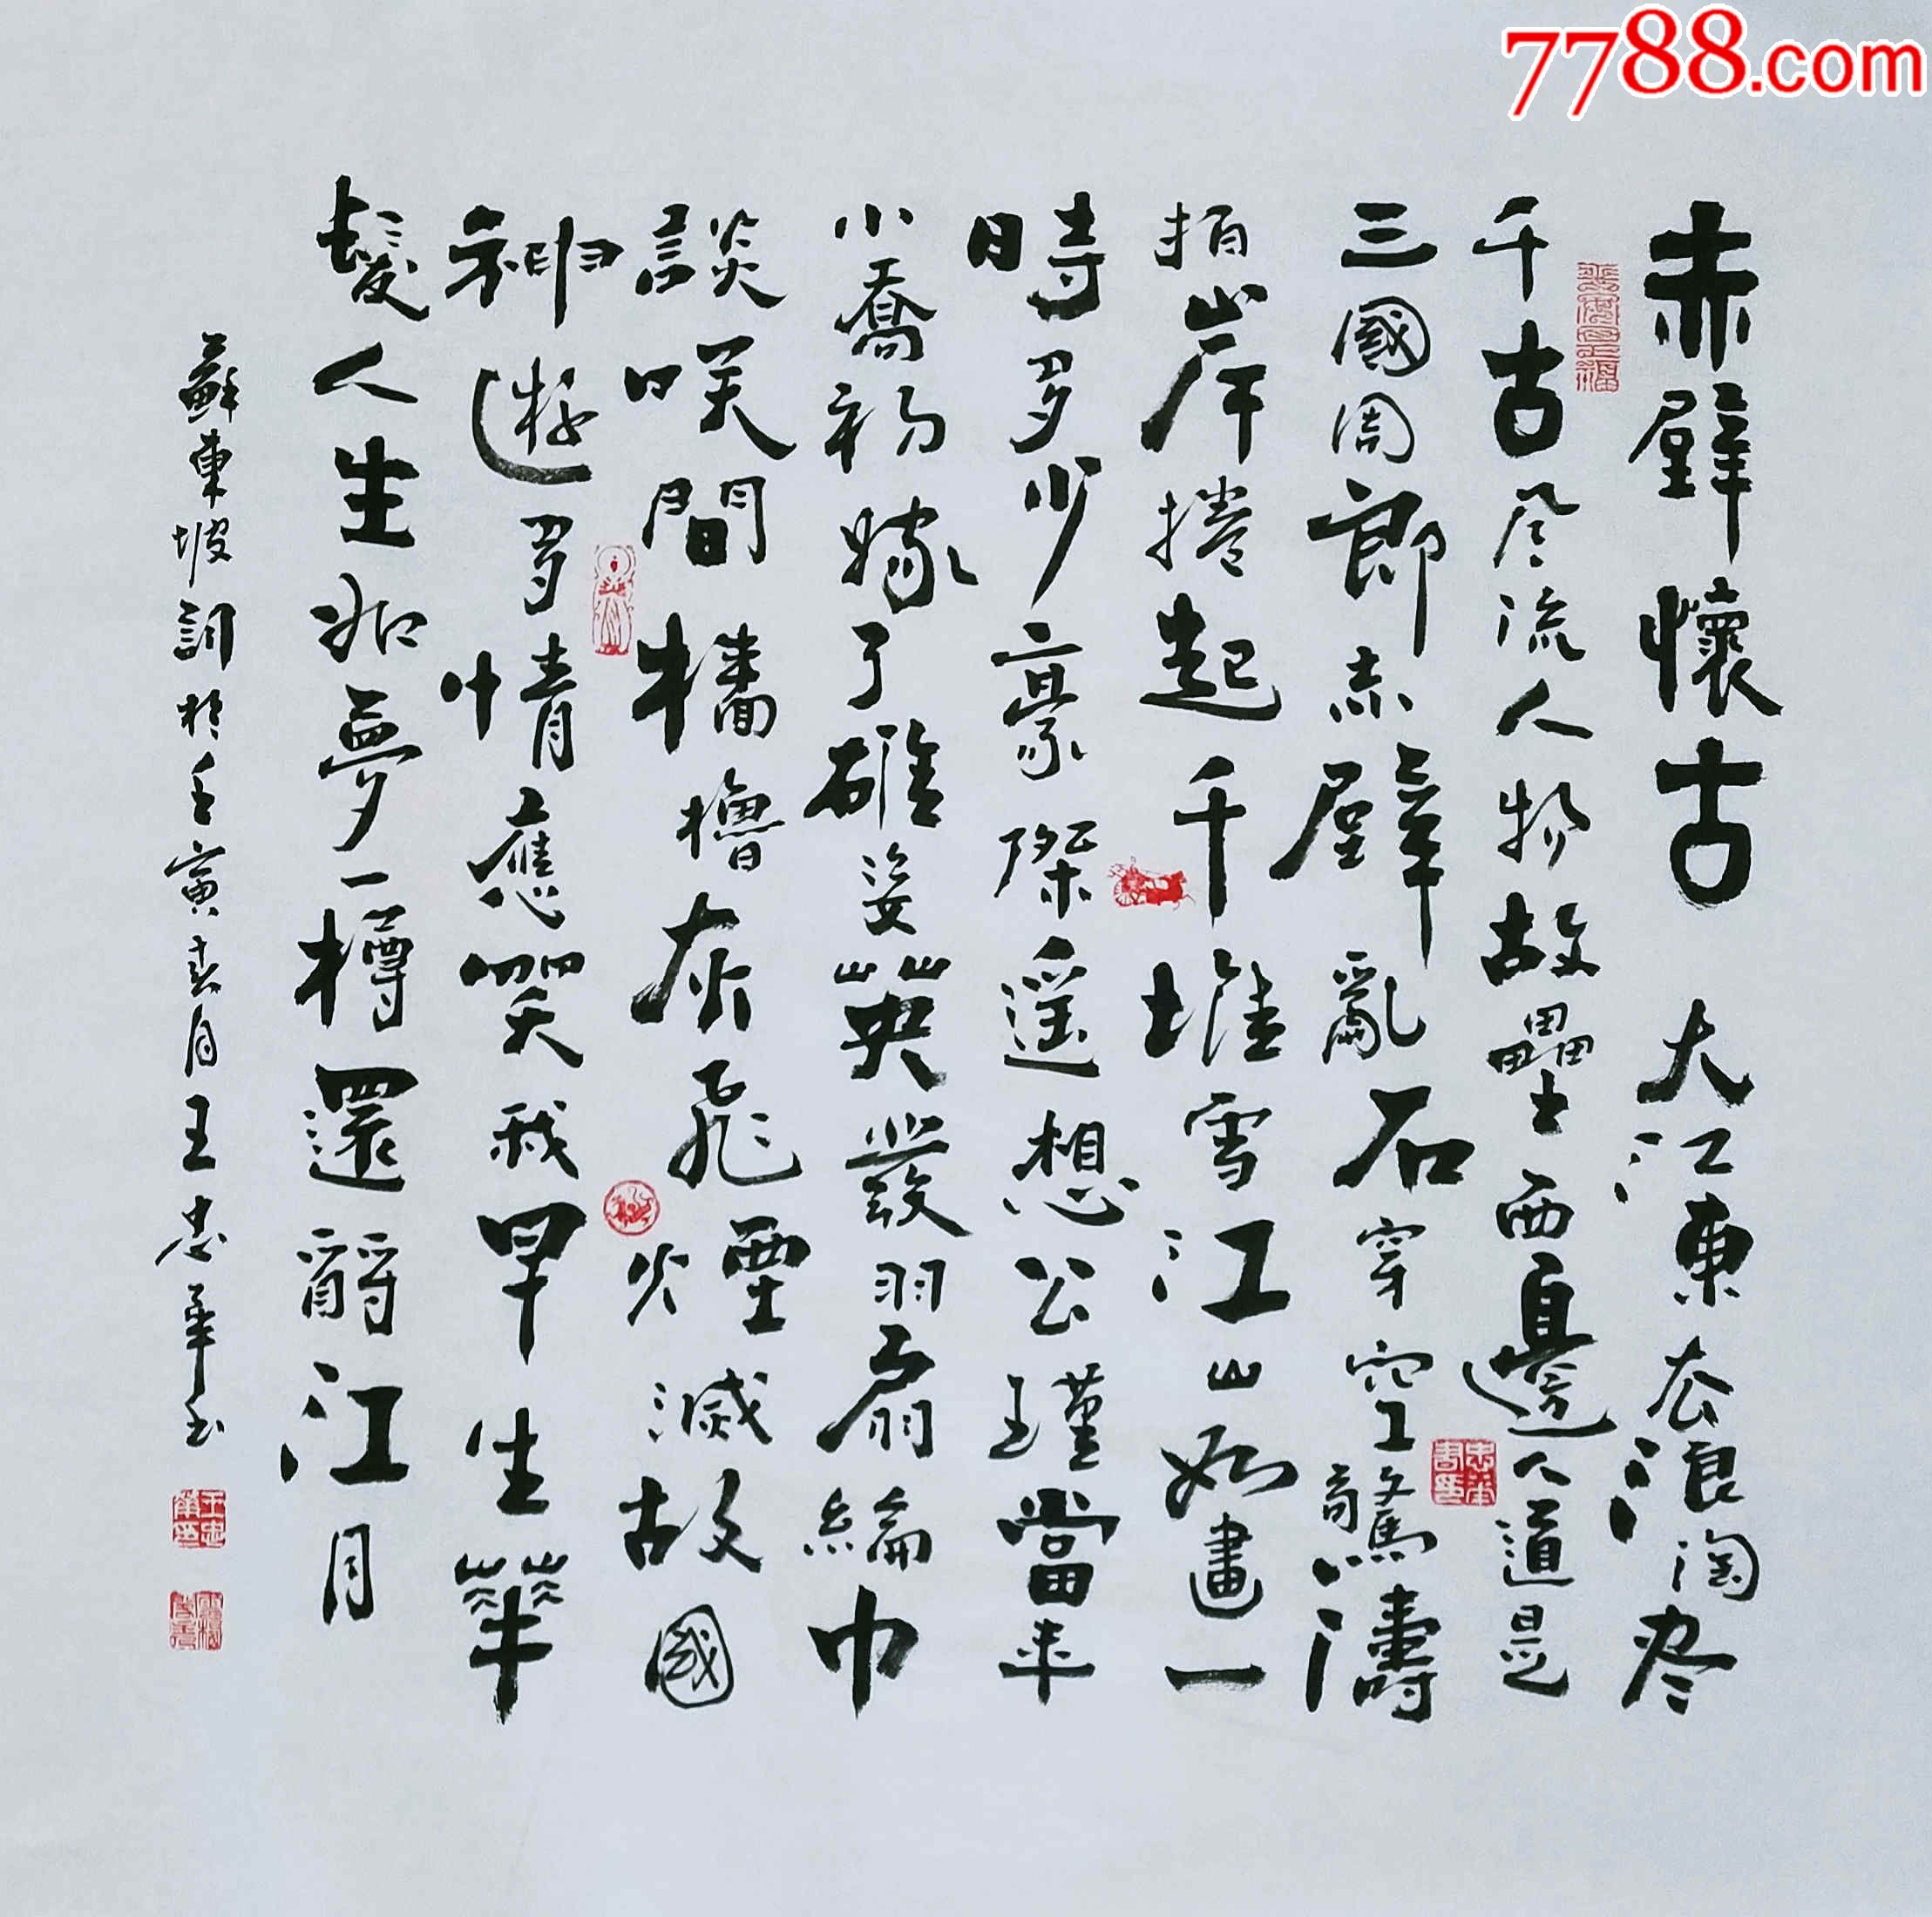 7788.com
赤壁懷古 大江東去浪淘盡
千古風流人物故壘西邊人道是
三國周郎赤壁亂石穿空驚濤
拍岸捲起千堆雪江山如畫一
時多少豪傑遥想公瑾當年
小喬初嫁了雄姿英發羽扇綸巾
談笑間檣櫓灰飛煙滅故國
神遊多情應笑我早生華
髮人生如夢一樽還酹江月
蘇東坡詞於壬寅春月王忠華書
王忠華印
忠華書印